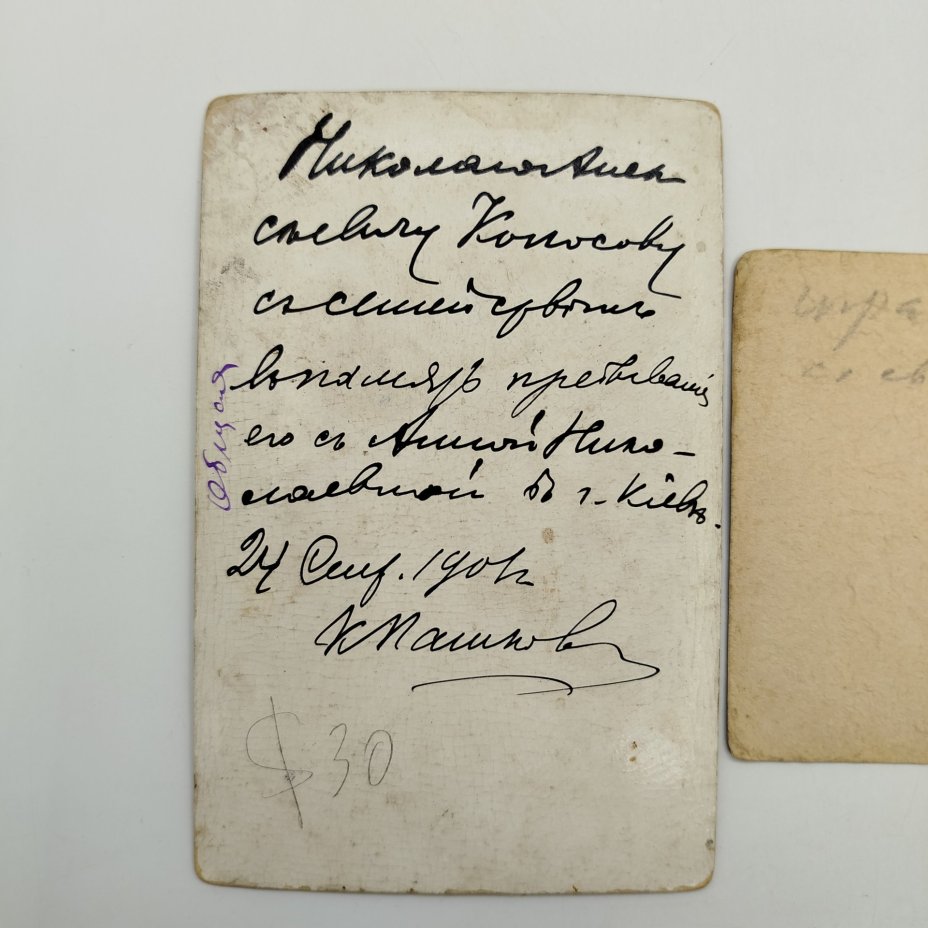 Николаю Алек
сѣевичу Копосову
съ семействомъ
въ память пребыванія
его съ Анной Нико-
лаевной въ г. Кіевѣ.
24 Сент. 1901 г.
К Пашковъ
$ 30